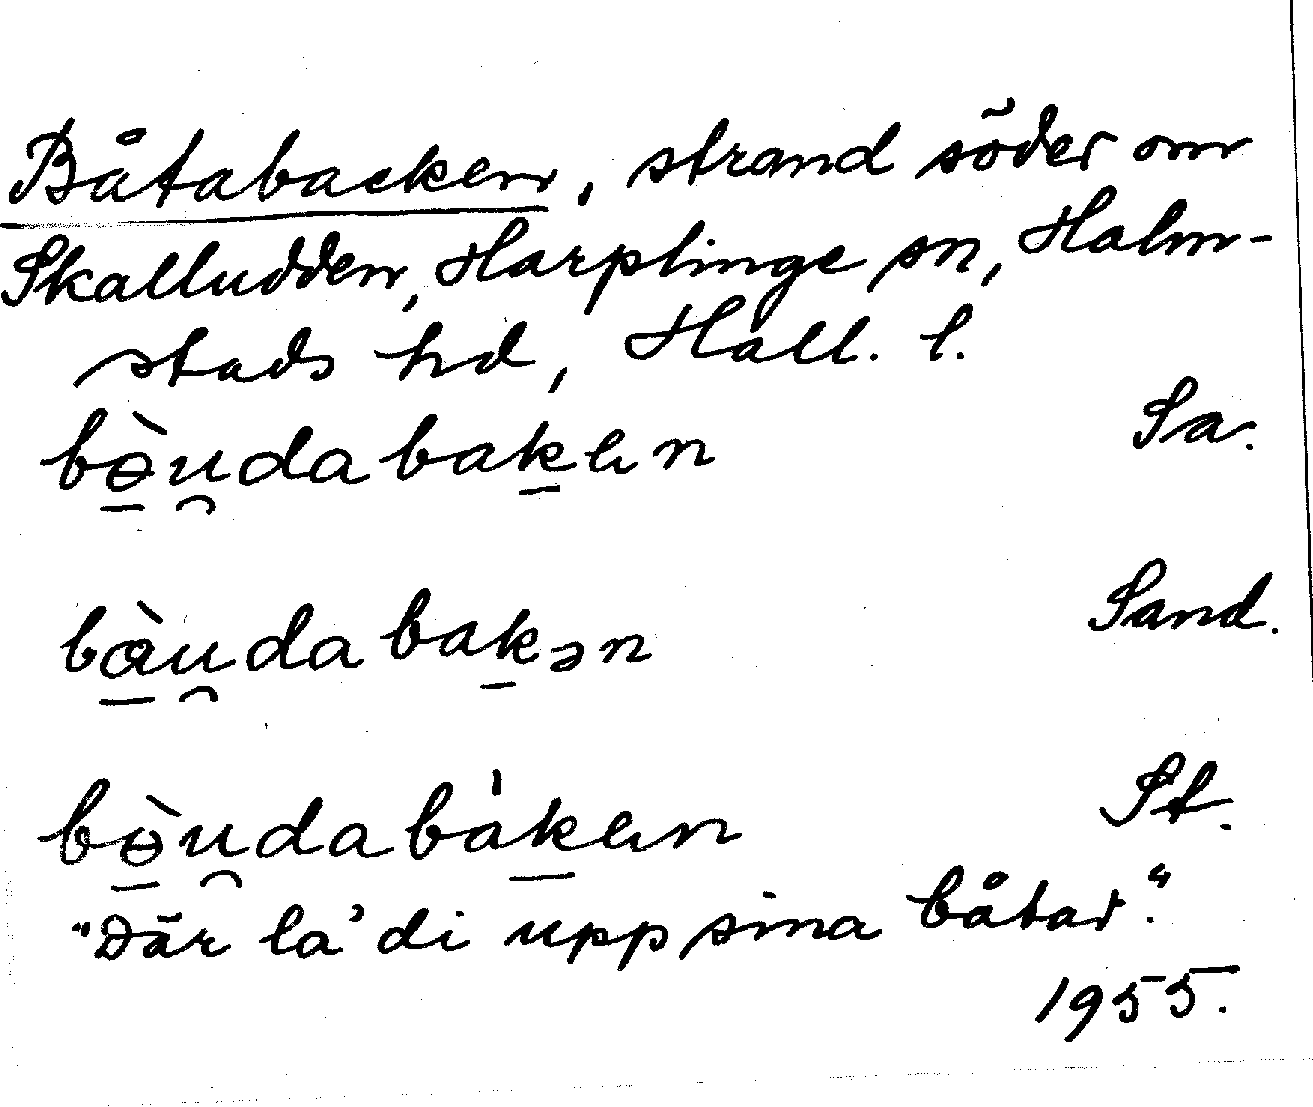 Båtabacken, strand söder om
Skalludden, Harplinge sn, Halm-
stads hd, Hall. l.
bɵ̠̀u̯dabak̠ən Sa.
bɑ̠̀u̯dabak̠ən Sand.
bɵ̠̀u̯dabàk̠ən St.
"Där la' di upp sina båtar."
1955.